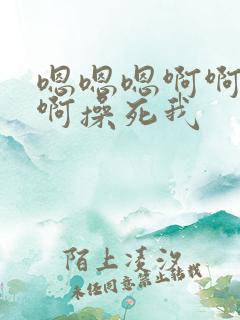 嗯嗯嗯啊啊
啊操死我
陌上凌汐
未经同意禁止转载